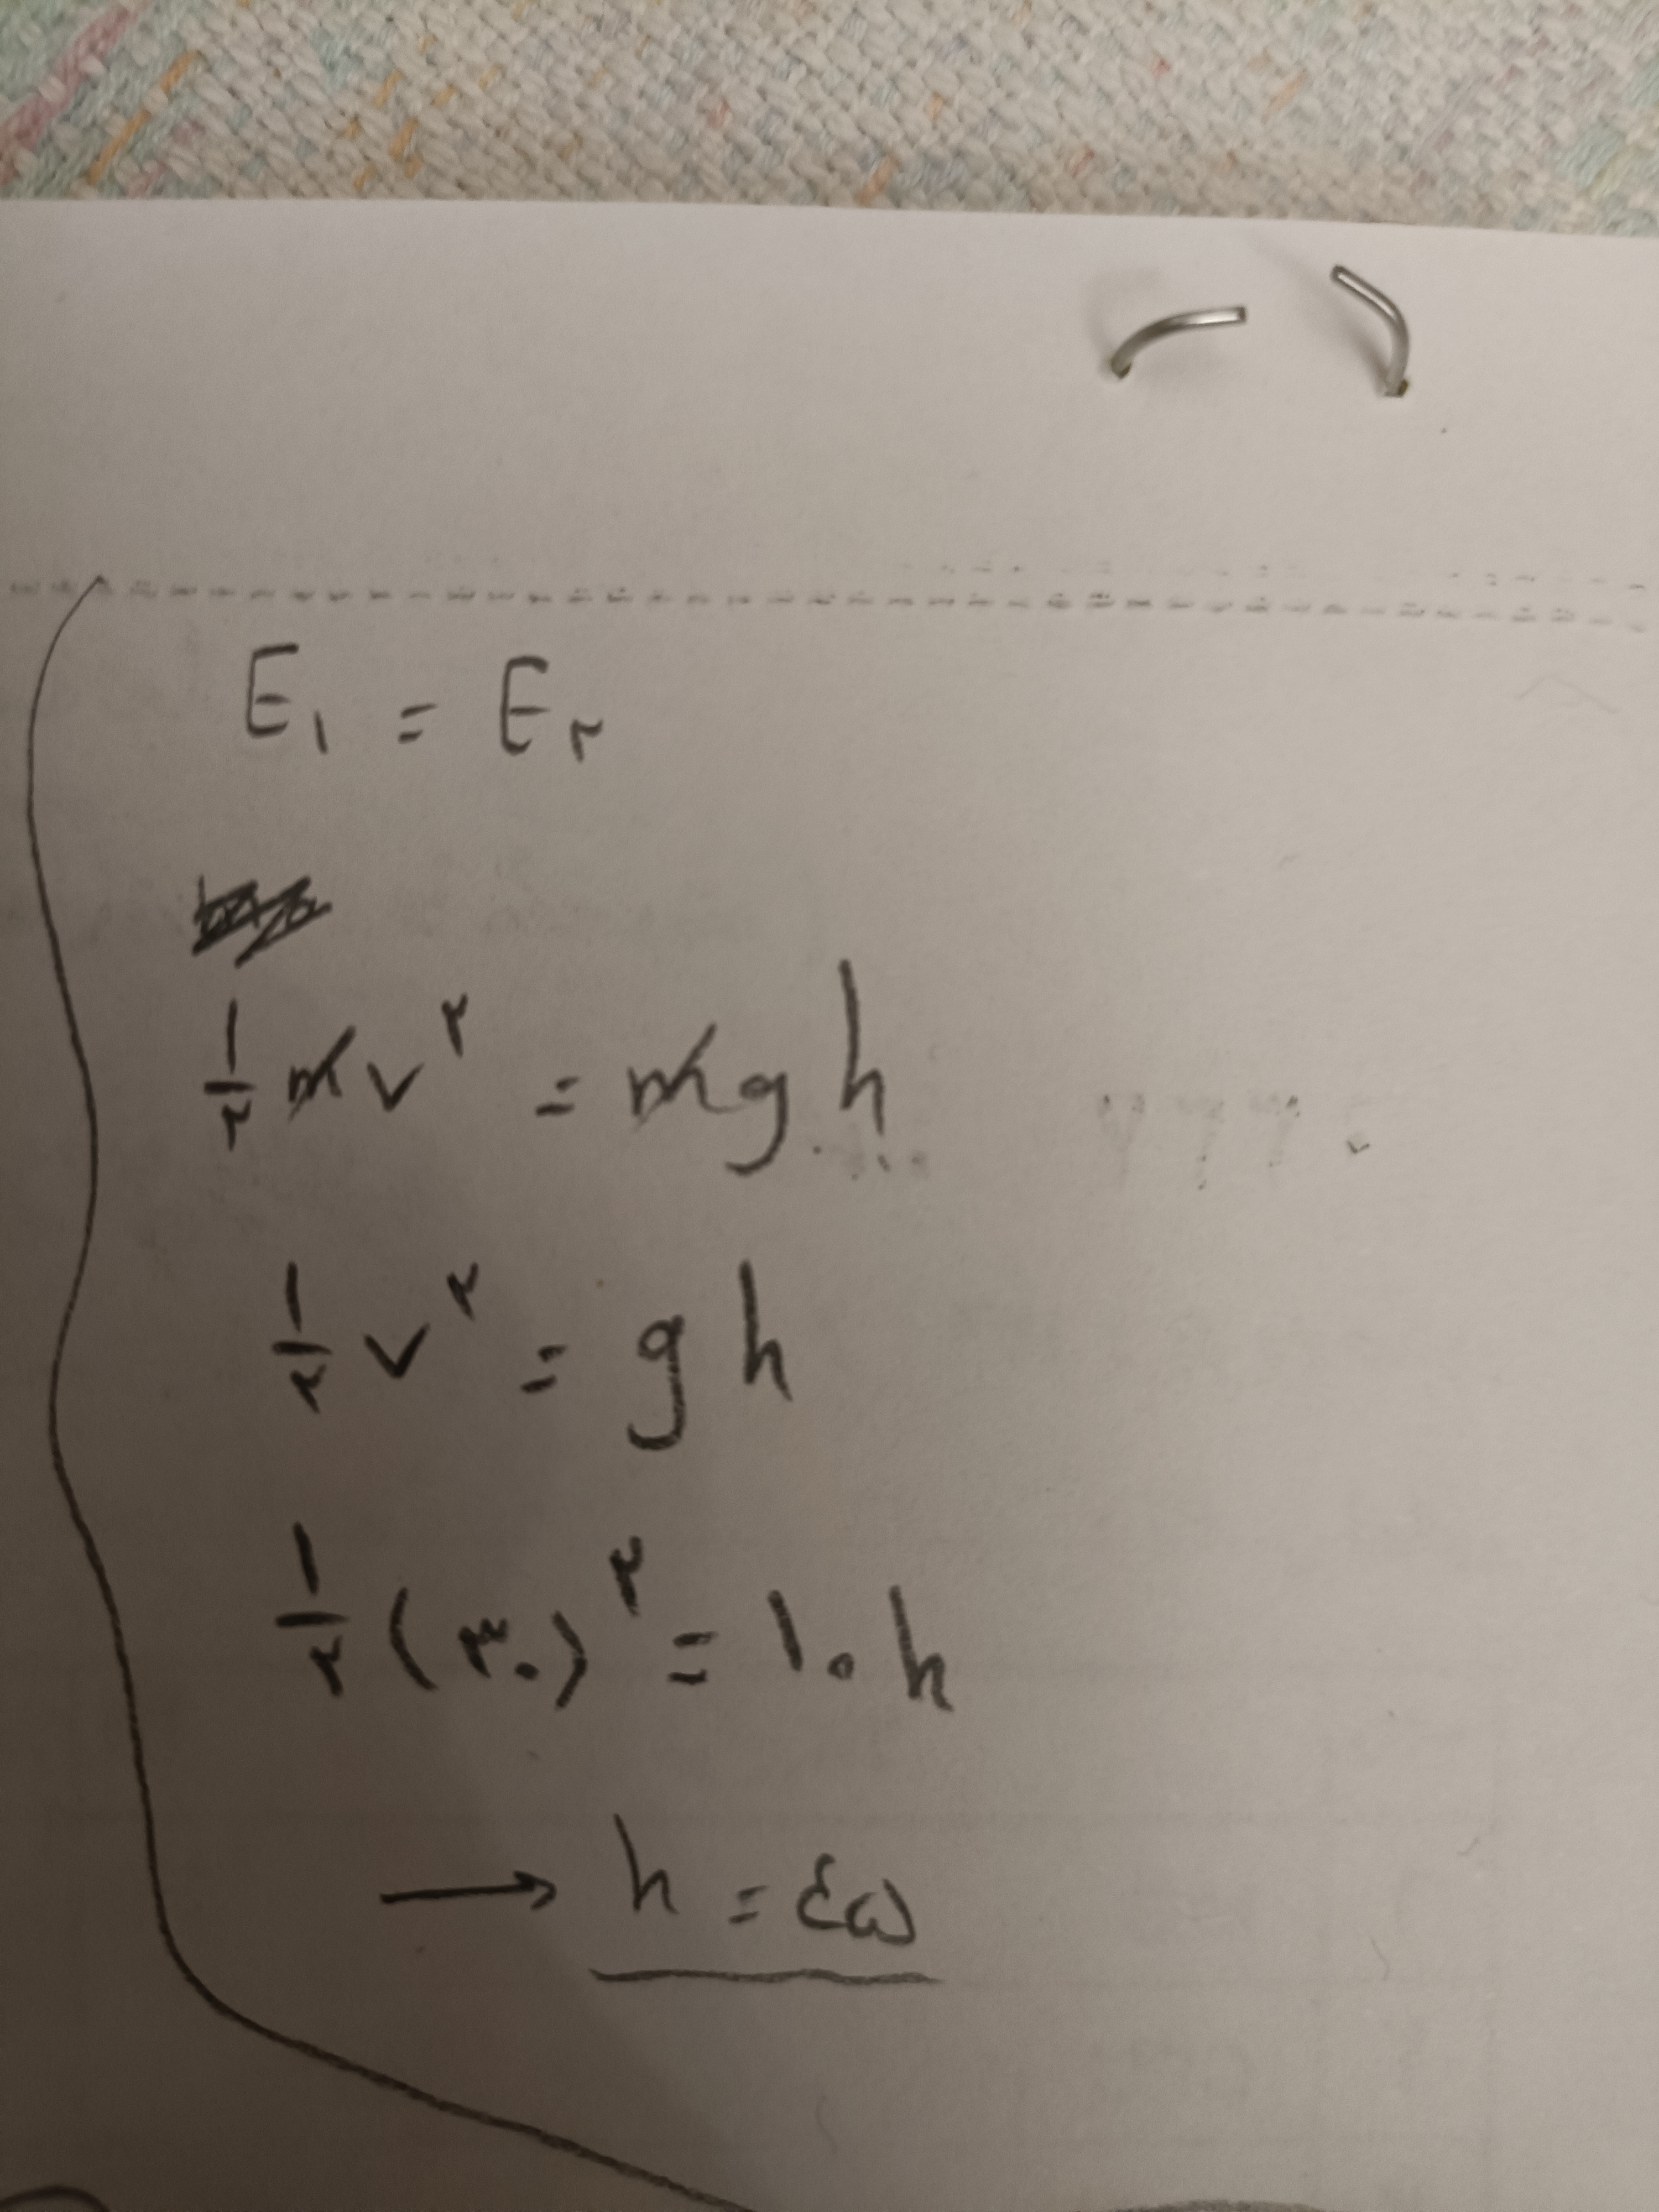 E₁ = E۲
۱/۲ mv^۲ = mgh
۱/۲ v^۲ = gh
۱/۲ (۳۰)^۲ = ۱۰h
→ h = ۴۵